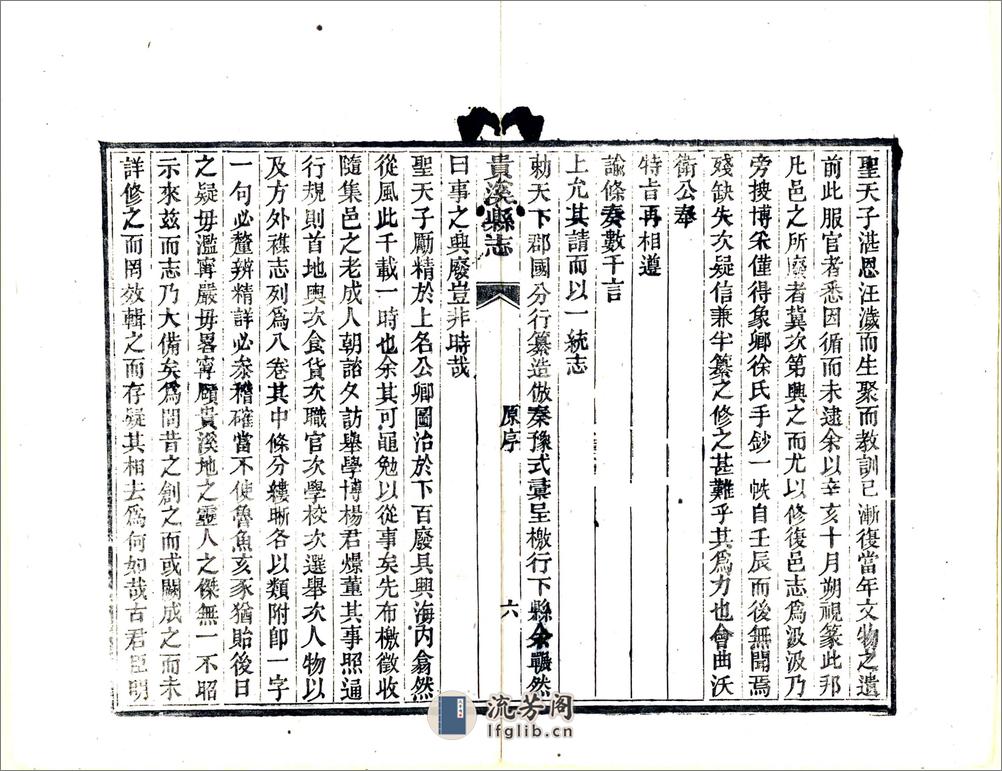 聖天子湛恩汪濊而生聚而教訓已漸復當年文物之遺
前此服官者悉因循而未逮余以辛亥十月朔視篆此邦
凡邑之所廢者冀次第興之而尤以修復邑志為汲汲乃
旁搜博采僅得象鄉徐氏手鈔一帙自壬辰而後無聞焉
殘缺失次疑信兼半纂之修之甚難乎其為力也會曲沃
衛公奉
特旨再相遵
諭條奏數千言
上允其請而以一統志
勅天下郡國分行纂造倣秦豫式彙呈檄行下縣余囅然
貴溪縣志
原序
六
曰事之興廢豈非時哉
聖天子勵精於上名公卿圖治於下百廢具興海內翕然
從風此千載一時也余其可黽勉以從事矣先布檄徵收
隨集邑之老成人朝諮夕訪舉學博楊君爆董其事照通
行規則首地輿次食貨次職官次學校次選舉次人物以
及方外襍志列為八卷其中條分縷晰各以類附即一字
一句必釐辨精詳必叅稽確當不使魯魚亥豕猶貽後日
之疑毋濫寧嚴毋畧寧
貴溪地之靈人之傑無一不昭
示來玆而志乃大備矣為問昔之創之而或闕成之而未
詳修之而罔效輯之而存疑其相去為何如哉古君臣明
流芳阁
lfglib.cn